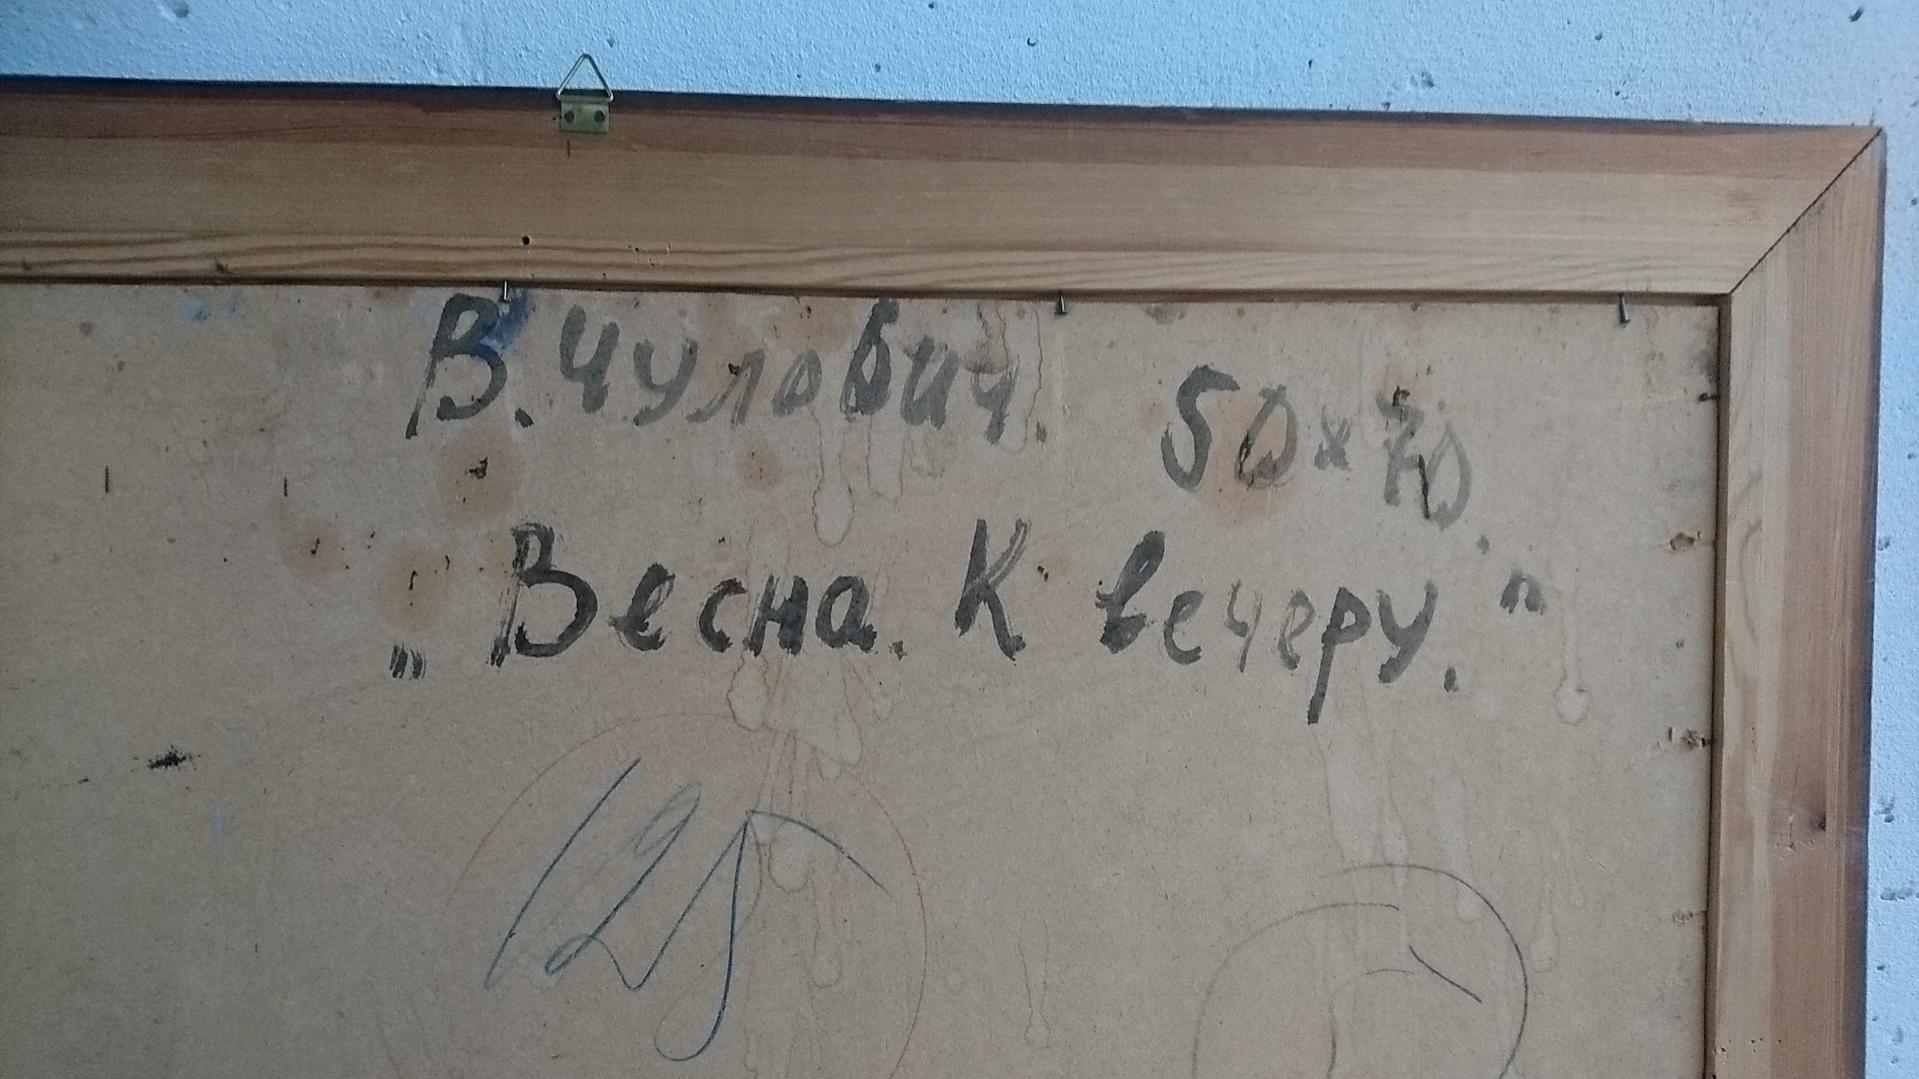 В. Чулович. 50х70
„Весна. К вечеру.“
125